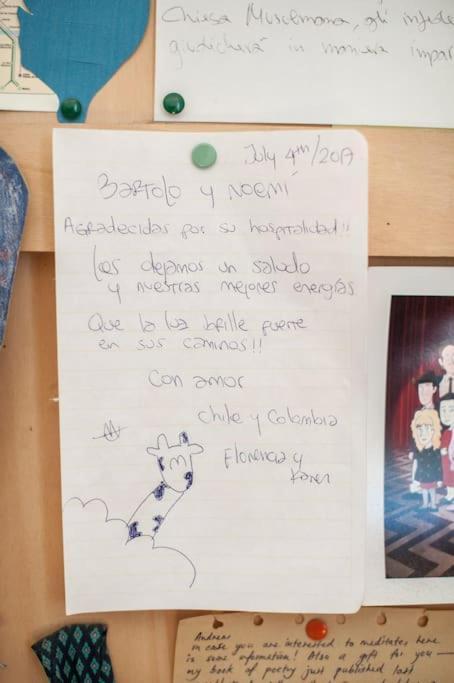 Chiesa Muselmana, gli infede
giudicherà in maniera impar
July 4th/2017
Bartolo y Noemí
Agradecidas por su hospitalidad!!
Les dejamos un saludo
y nuestras mejores energías
Que la luz brille fuerte
en sus caminos!!
Con amor
Chile y Colombia
Florencia y
Karen
Andrew
in case you are interested to meditate here
is some information! Also a gift for you —
my book of poetry just published last